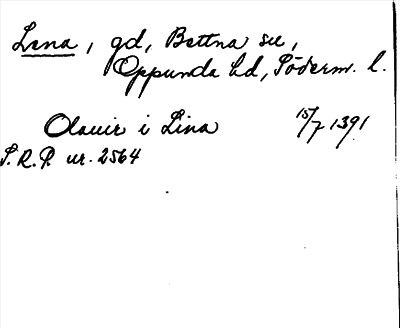 Lena, gd, Bettna sn,
Oppunda hd, Söderm. l.
Olauir i Lina 15/7 1391
S.R.P. nr. 2564